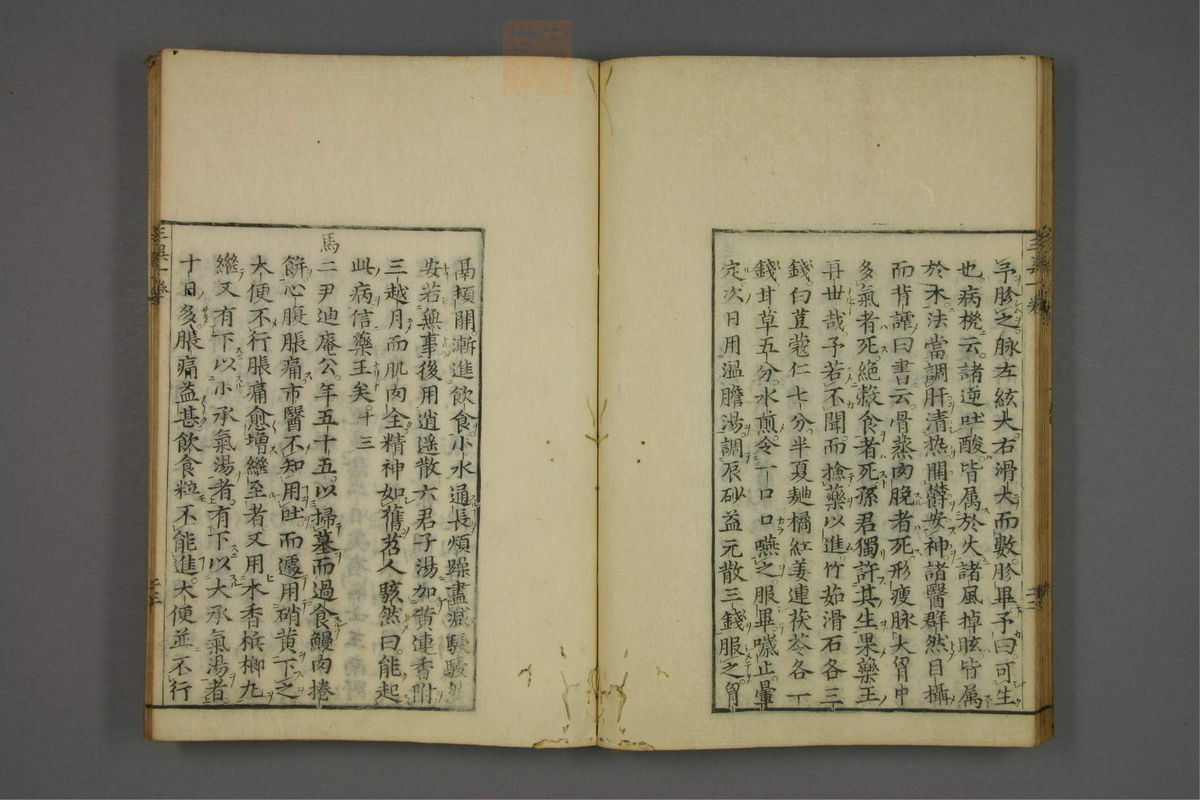 予胗之脉左絃大右滑大而數胗畢予曰可生
也病機云諸逆吐酸皆属於火諸風掉眩皆属
於木法當調肝清热開欝安神諸醫群然目攝
而背謔曰書云骨蒸肉脫者死形瘦脉大胷中
多氣者死絕穀食者死孫君獨許其生果藥王
再世哉予若不聞而撿藥以進竹茹滑石各三
錢白荳蔻仁七分半夏麯橘紅姜連茯苓各一
錢甘草五分水煎令一口口嚥之服畢嘔止暈
定次日用温膽湯調辰砂益元散三錢服之胷
膈頓開漸進飲食小水通長煩躁盡減駸駸然
安若無事後用逍遥散六君子湯加黄連香附
三越月而肌肉全精神如舊茗人駭然曰能起
此病信藥王矣十三
馬二尹迪庵公年五十五以掃墓而過食鰻肉捲
餅心腹脹痛市醫不知用吐而遽用硝黄下之
大便不行脹痛愈增繼至者又用木香檳榔九
繼又有下以小承氣湯者有下以大承氣湯者
十日多脹痛益甚飲食粒不能進大便並不行